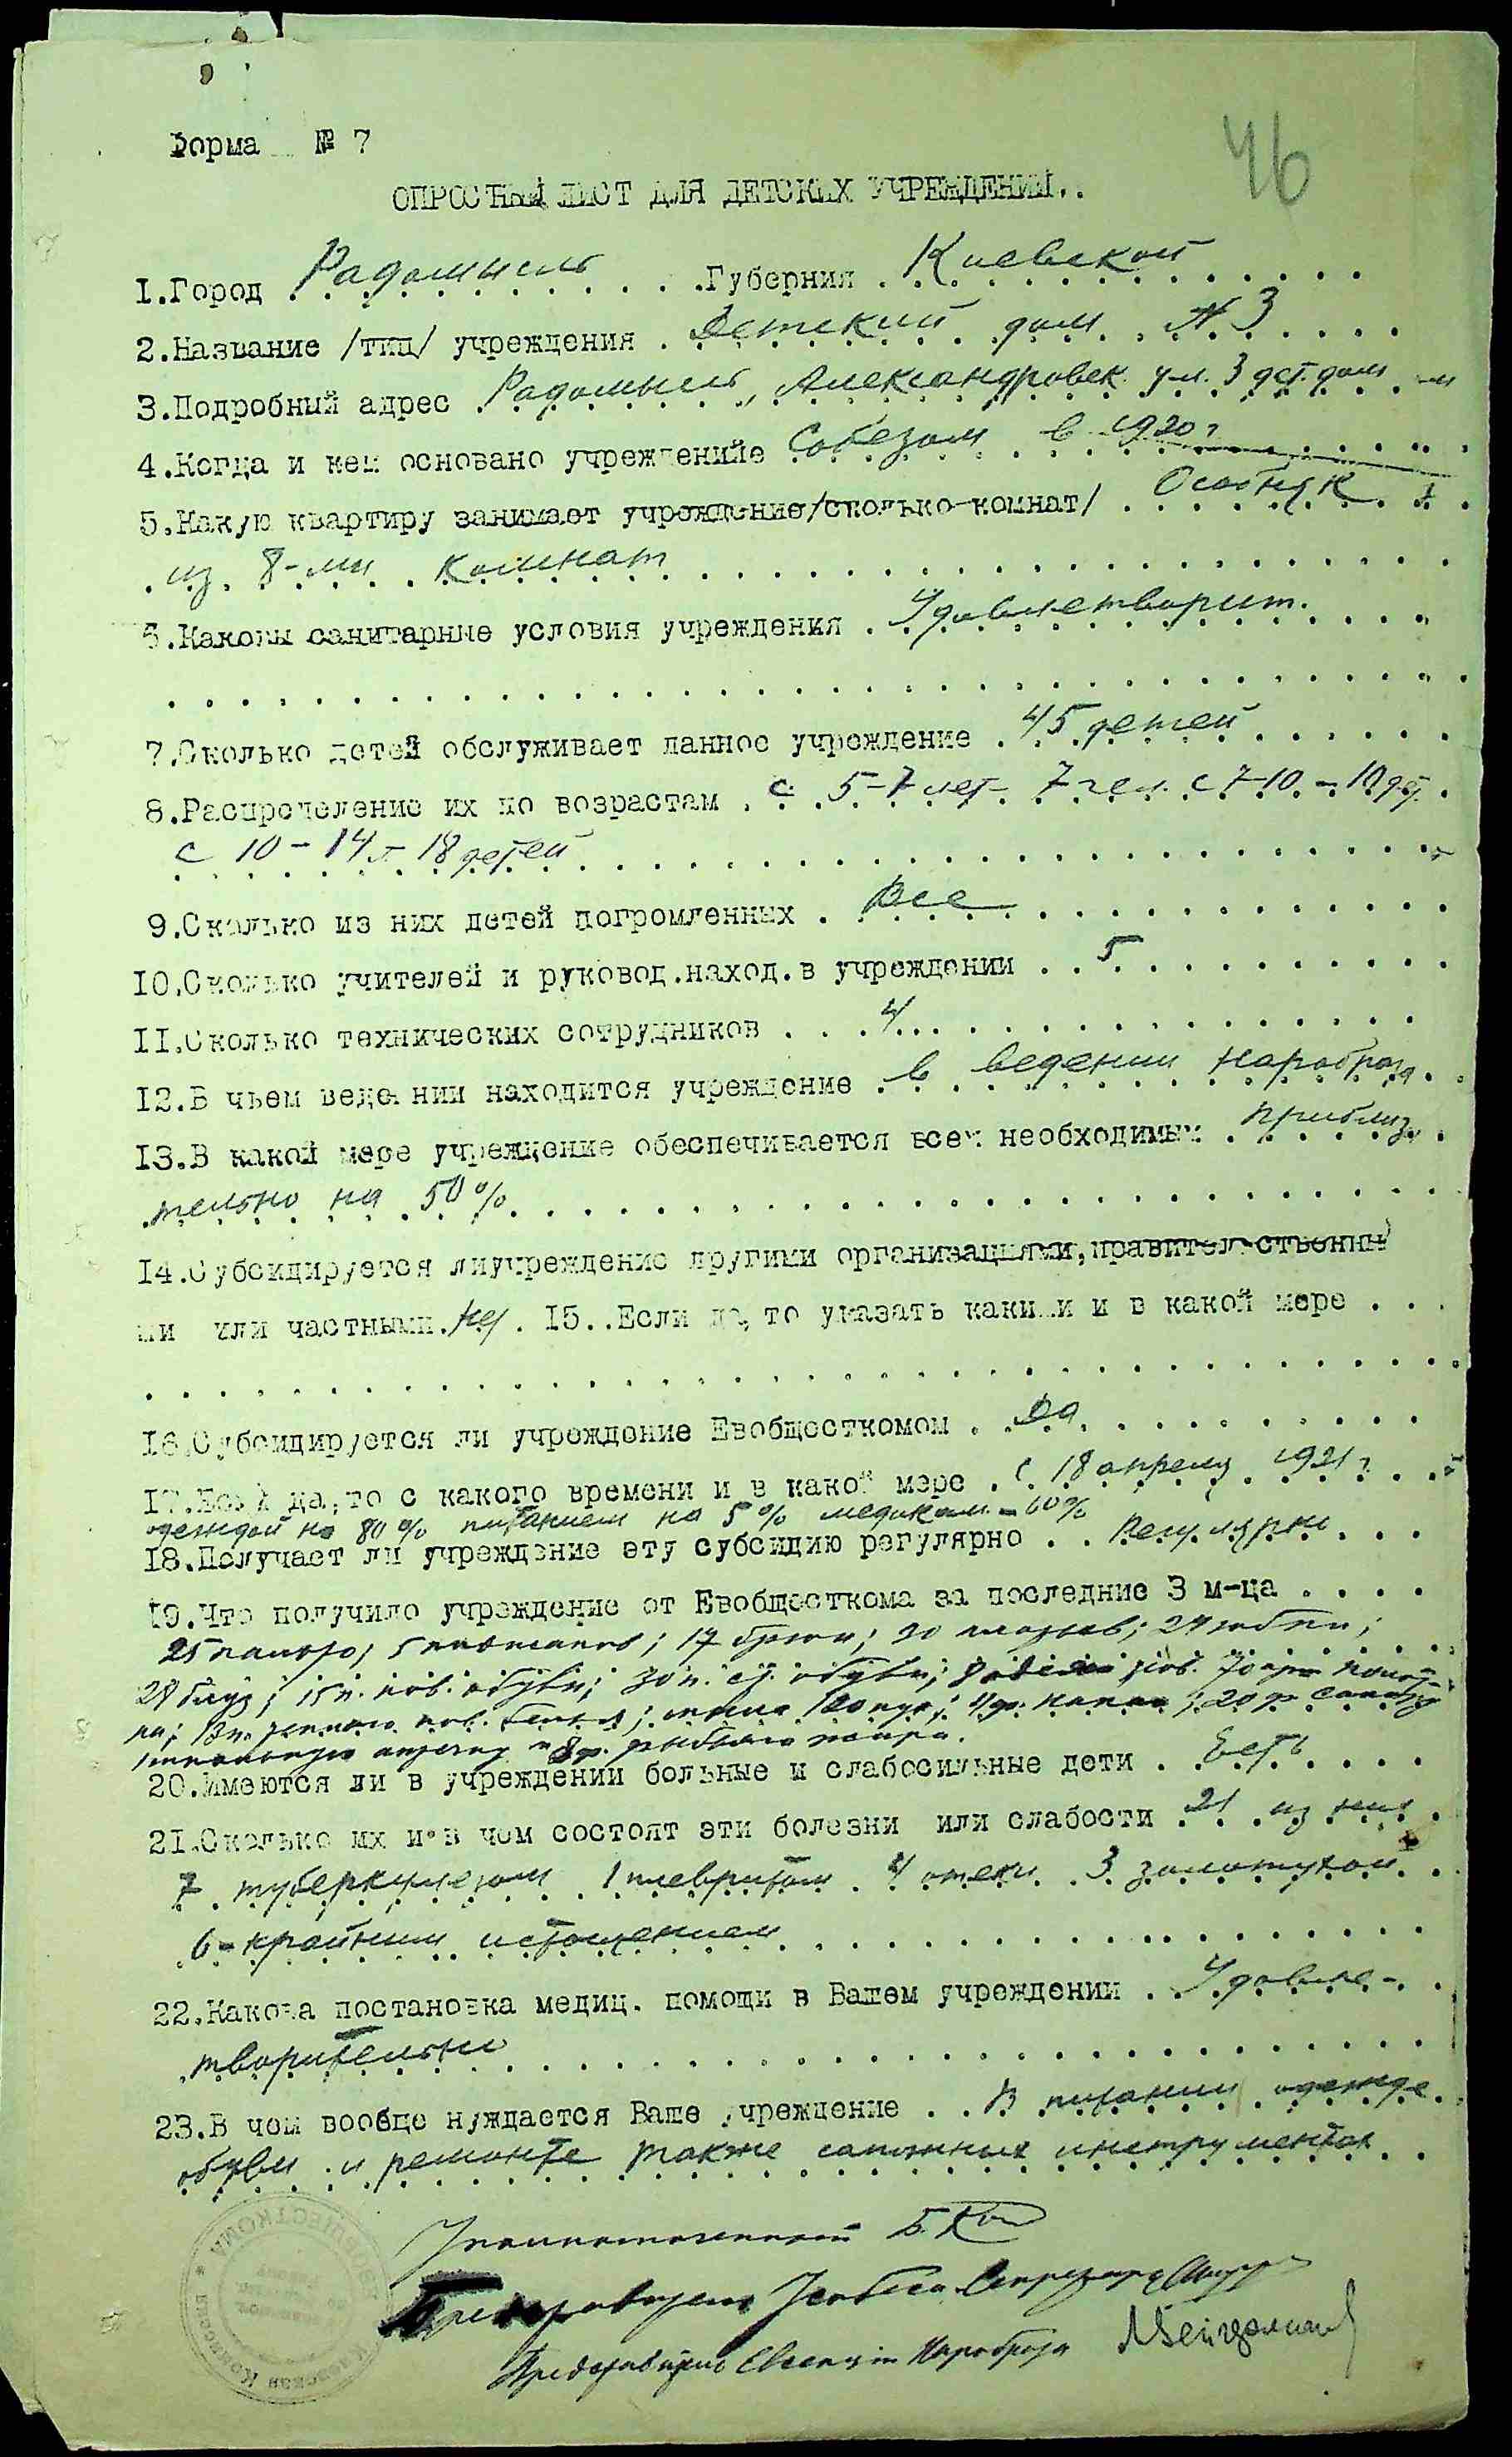 Форма № 7
46
ОПРОСНЫЙ ЛИСТ ДЛЯ ДЕТСКИХ УЧРЕЖДЕНИЙ..
1.Город Радомысль Губерния Киевской
2.Название /тип/ учреждения Детский дом № 3
3.Подробный адрес Радомысль, Александровск. ул. 3 дет. дом
4.Когда и кем основано учреждениие Собезом в 1920 г
5.Какую квартиру занимает учреждение/сколько-комнат/ Особняк
из 8-ми комнат
6.Каковы санитарные условия учреждения Удовлетворит.
7.Сколько детей обслуживает данное учреждение 45 детей
8.Распределение их по возрастам с 5-7 лет- 7 чел. с 7-10 - 10 дет.
с 10-14 л. 18 детей
9.Сколько из них детей погромленных Все
10.Сколько учителей и руковод.наход.в учреждении 5
11.Сколько технических сотрудников 4
12.В чьем веде нии находится учреждение в ведении наробраза
13.В какой мере учреждение обеспечивается всем необходимым приблизи
тельно на 50%
14.Субсидируется лиучреждение другими организациями,правительственны
ми или частными. Нет. 15..Если да, то указать какими и в какой мере
16.Субсидируется ли учреждение Евобщесткомом Да
17.Если да,то с какого времени и в какой мере с 18 апреля 1921 г.
одеждой на 80% питанием на 5% медикам.-60%
18.Получает ли учреждение эту субсидию регулярно Регулярно
19.Что получило учреждение от Евобщесткома за последние 3 м-ца
25 пальто; 5 пиджаков; 17 брюк; 20 24 юбки;
28 блуз; 15 п. нов. обуви; 30 п. ст. обуви; нов. 70 арш.
на; теплого нов. белья; мыла 4 ф. какао; 20 ф.
аптечку и 8 ф. рыбьего жира.
20.Имеются ли в учреждении больные и слабосильные дети Есть
21.Сколько их и в чем состоят эти болезни или слабости 21 из них
7 туберкулезом 1 плевритом 4 отеки 3 золотухой
6-крайним истощением
22.Какова постановка медиц. помощи в Вашем учреждении Удовле-
творительно
23.В чем вообще нуждается Ваше учреждение В питании одежде
обуви и ремонте также сапожных инструментах
Уполномоченный Б.
Представитель Секретарь
Представитель Евсекции Наробраза